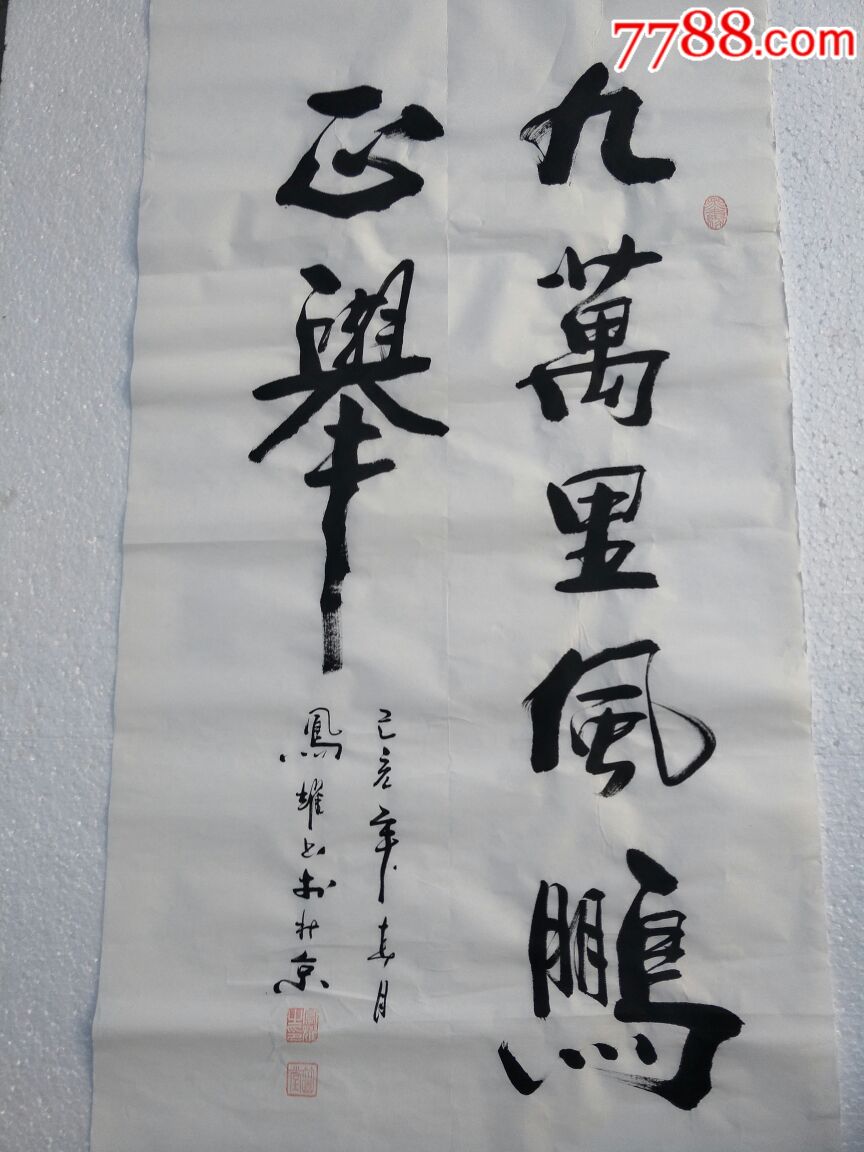 7788.com
九萬里風鵬
正舉
己亥年春月
鳳耀书於北京